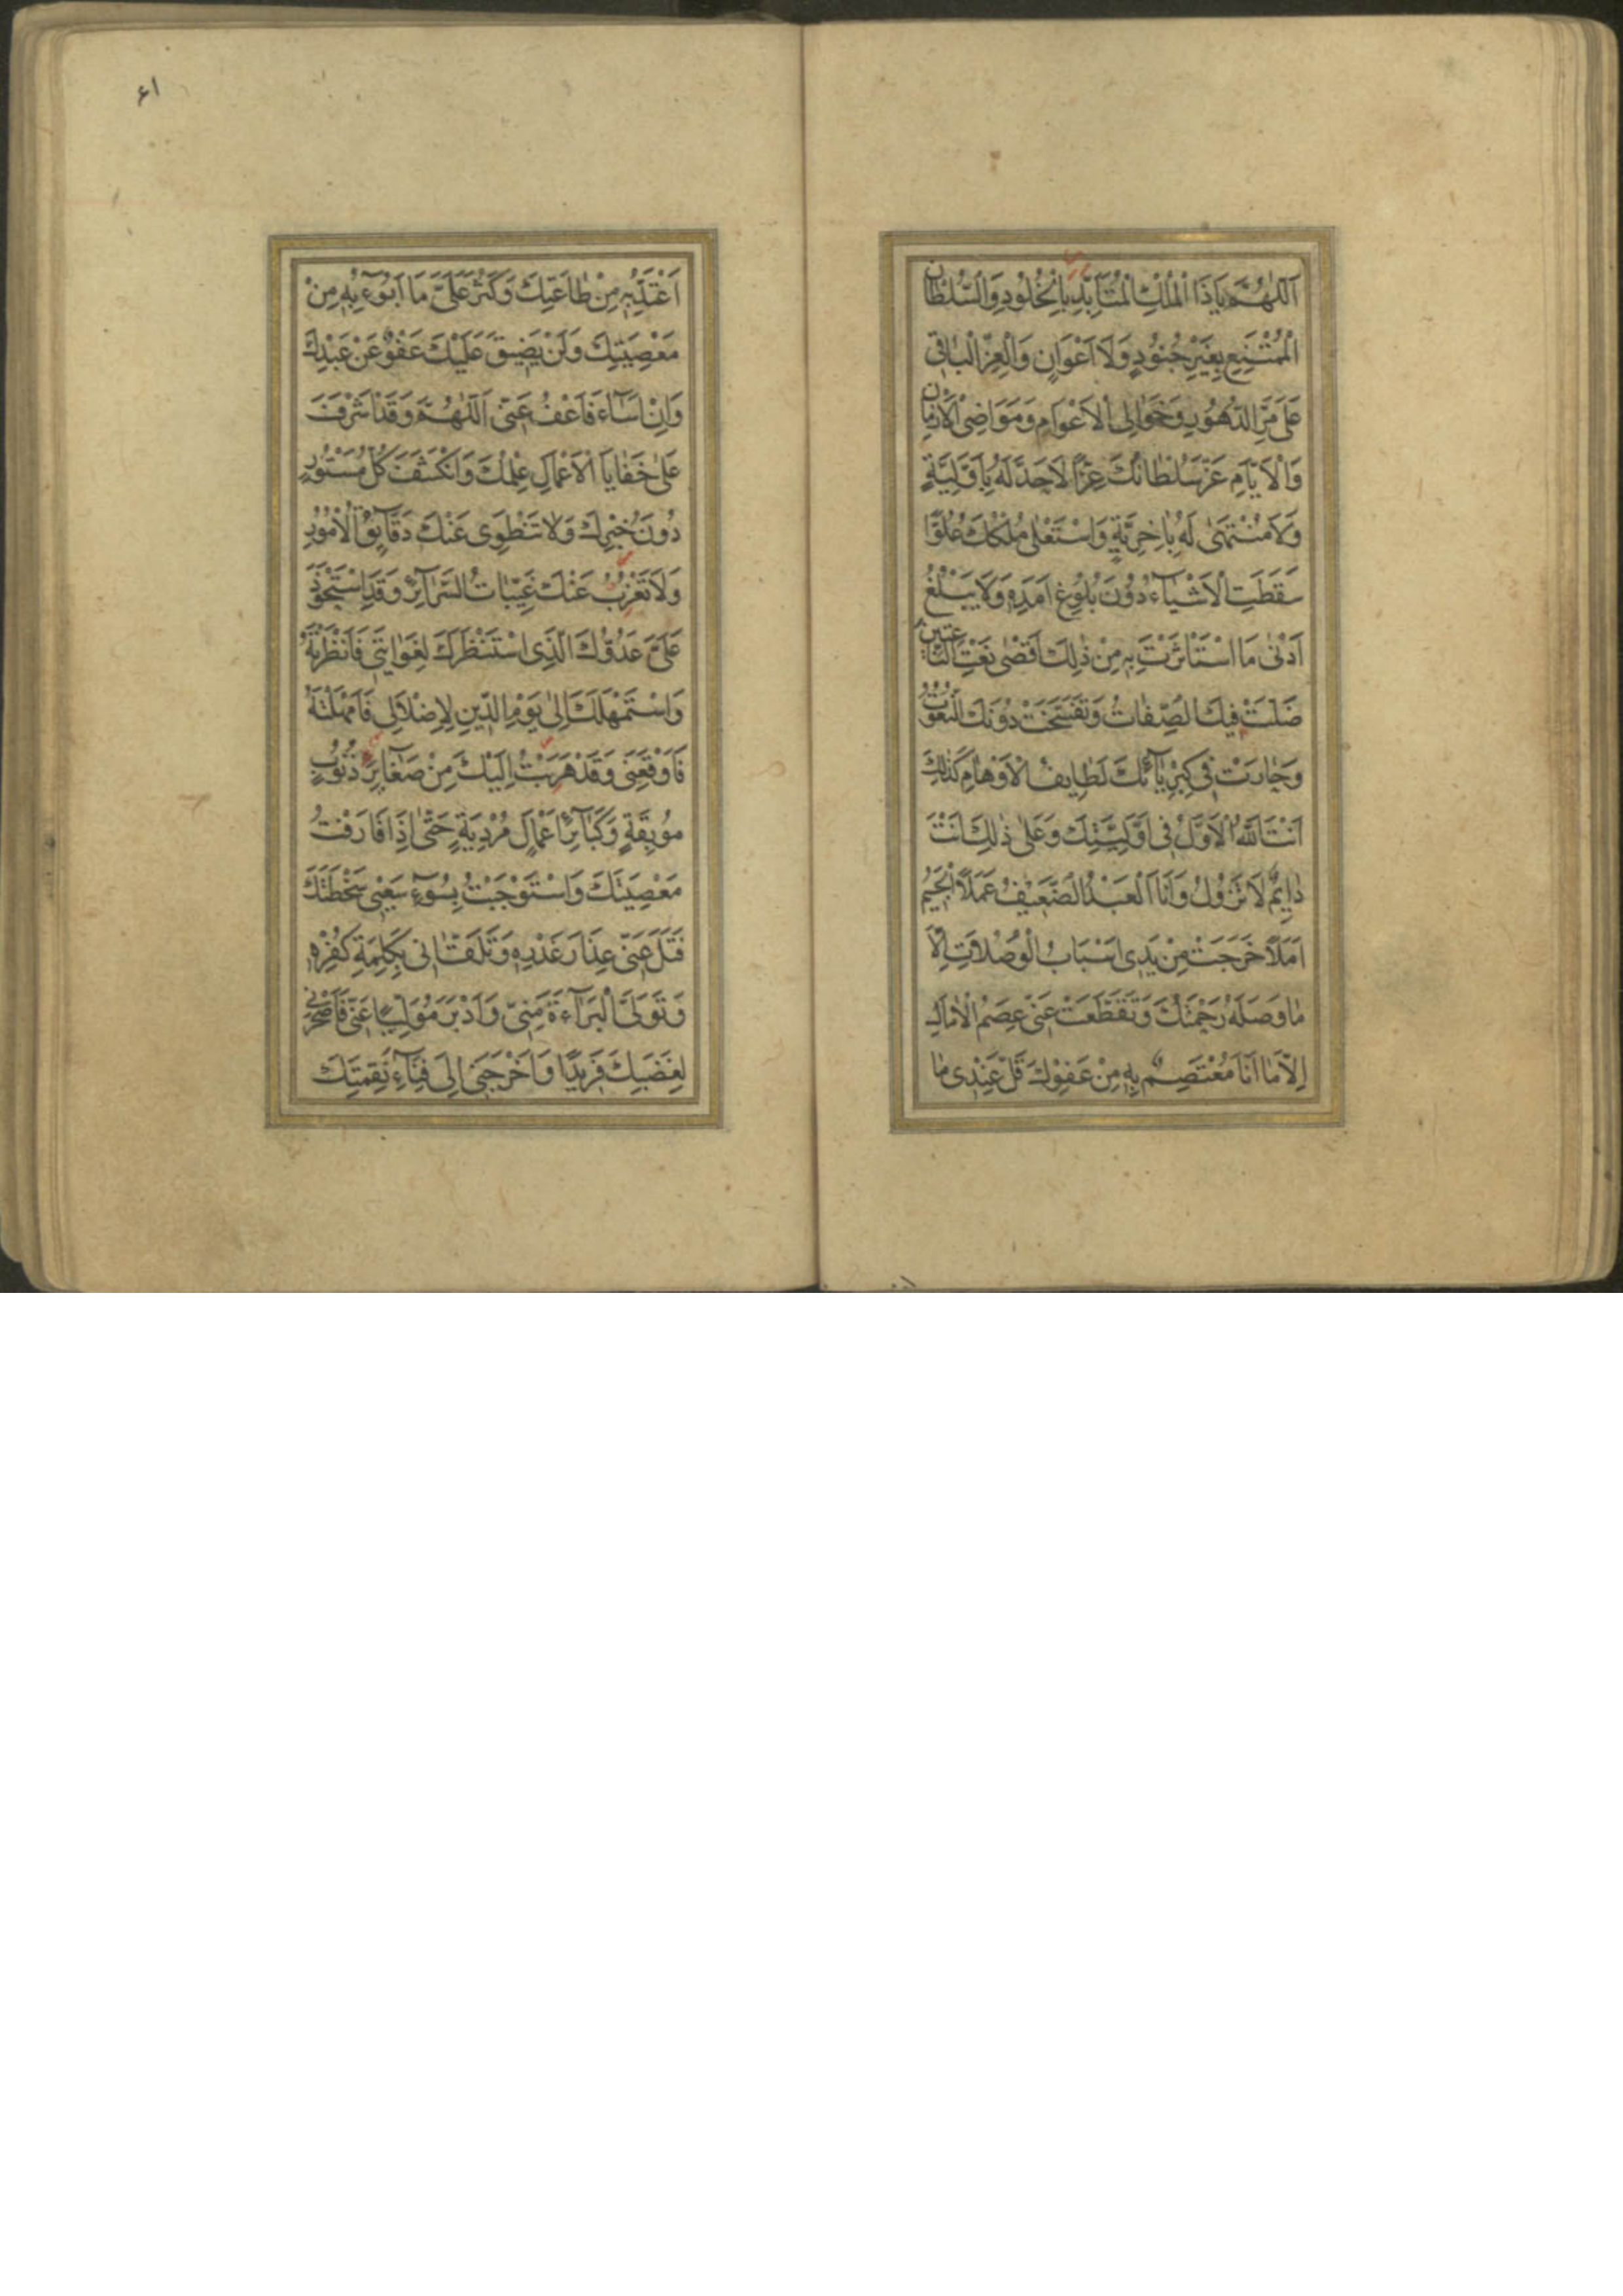 اَللّٰهُمَّ يَاذَا الْمُلْكِ الْمُتَاَبِّدِ بِالْخُلُودِ وَالسُّلْطَانِ
الْمُمْتَنِعِ بِغَيْرِ جُنُودٍ وَلَا اَعْوَانٍ وَالْعِزِّ الْبَاقِي
عَلٰى مَرِّ الدُّهُورِ وَخَوَالِي الْاَعْوَامِ وَمَوَاضِي الْاَزْمَانِ
وَالْاَيَّامِ عَزَّ سُلْطَانُكَ عِزًّا لَا حَدَّ لَهُ بِاَوَّلِيَّةٍ
وَلَا مُنْتَهٰى لَهُ بِاٰخِرِيَّةٍ وَاسْتَعْلٰى مُلْكُكَ عُلُوًّا
سَقَطَتِ الْاَشْيَاءُ دُونَ بُلُوغِ اَمَدِهِ وَلَا يَبْلُغُ
اَدْنٰى مَا اسْتَأْثَرْتَ بِهِ مِنْ ذٰلِكَ اَقْصٰى نَعْتِ النَّاعِتِينَ
ضَلَّتْ فِيكَ الصِّفَاتُ وَتَفَسَّخَتْ دُونَكَ النُّعُوتُ
وَحَارَتْ فِي كِبْرِيَائِكَ لَطَايِفُ الْاَوْهَامِ كَذٰلِكَ
اَنْتَ اللّٰهُ الْاَوَّلُ فِي اَوَّلِيَّتِكَ وَعَلٰى ذٰلِكَ اَنْتَ
دَايِمٌ لَا تَزُولُ وَاَنَا الْعَبْدُ الضَّعِيفُ عَمَلًا الْجَسِيمُ
اَمَلًا خَرَجَتْ مِنْ يَدِي اَسْبَابُ الْوُصُلَاتِ اِلَّا
مَا وَصَلَهُ رَحْمَتُكَ وَتَقَطَّعَتْ عَنِّي عِصَمُ الْاٰمَالِ
اِلَّا مَا اَنَا مُعْتَصِمٌ بِهِ مِنْ عَفْوِكَ قَلَّ عِنْدِي مَا
۶۱
اَعْتَدُّ بِهِ مِنْ طَاعَتِكَ وَكَثُرَ عَلَيَّ مَا اَبُوءُ بِهِ مِنْ
مَعْصِيَتِكَ وَلَنْ يَضِيقَ عَلَيْكَ عَفْوٌ عَنْ عَبْدِكَ
وَاِنْ اَسَاءَ فَاعْفُ عَنِّي اَللّٰهُمَّ وَقَدْ اَشْرَفَ
عَلٰى خَفَايَا الْاَعْمَالِ عِلْمُكَ وَانْكَشَفَ كُلُّ مَسْتُورٍ
دُونَ خُبْرِكَ وَلَا تَنْطَوِي عَنْكَ دَقَايِقُ الْاُمُورِ
وَلَا تَعْزُبُ عَنْكَ غَيِّبَاتُ السَّرَائِرِ وَقَدِ اسْتَحْوَذَ
عَلَيَّ عَدُوُّكَ الَّذِي اسْتَنْظَرَكَ لِغَوَايَتِي فَاَنْظَرْتَهُ
وَاسْتَمْهَلَكَ اِلٰى يَوْمِ الدِّينِ لِاِضْلَالِي فَاَمْهَلْتَهُ
فَاَوْقَعَنِي وَقَدْ هَرَبْتُ اِلَيْكَ مِنْ صَغَايِرِ ذُنُوبٍ
مُوبِقَةٍ وَكَبَائِرِ اَعْمَالٍ مُرْدِيَةٍ حَتّٰى اِذَا قَارَفْتُ
مَعْصِيَتَكَ وَاسْتَوْجَبْتُ بِسُوءِ سَعْيِي سَخْطَتَكَ
فَتَلَ عَنِّي عِذَارَ غَدْرِهِ وَتَلَقَّانِي بِكَلِمَةِ كُفْرِهِ
وَتَوَلَّى الْبَرَاءَةَ مِنِّي وَاَدْبَرَ مُوَلِّيًا عَنِّي فَاَصْحَرَنِي
لِغَضَبِكَ فَرِيدًا وَاَخْرَجَنِي اِلٰى فِنَاءِ نَقِمَتِكَ